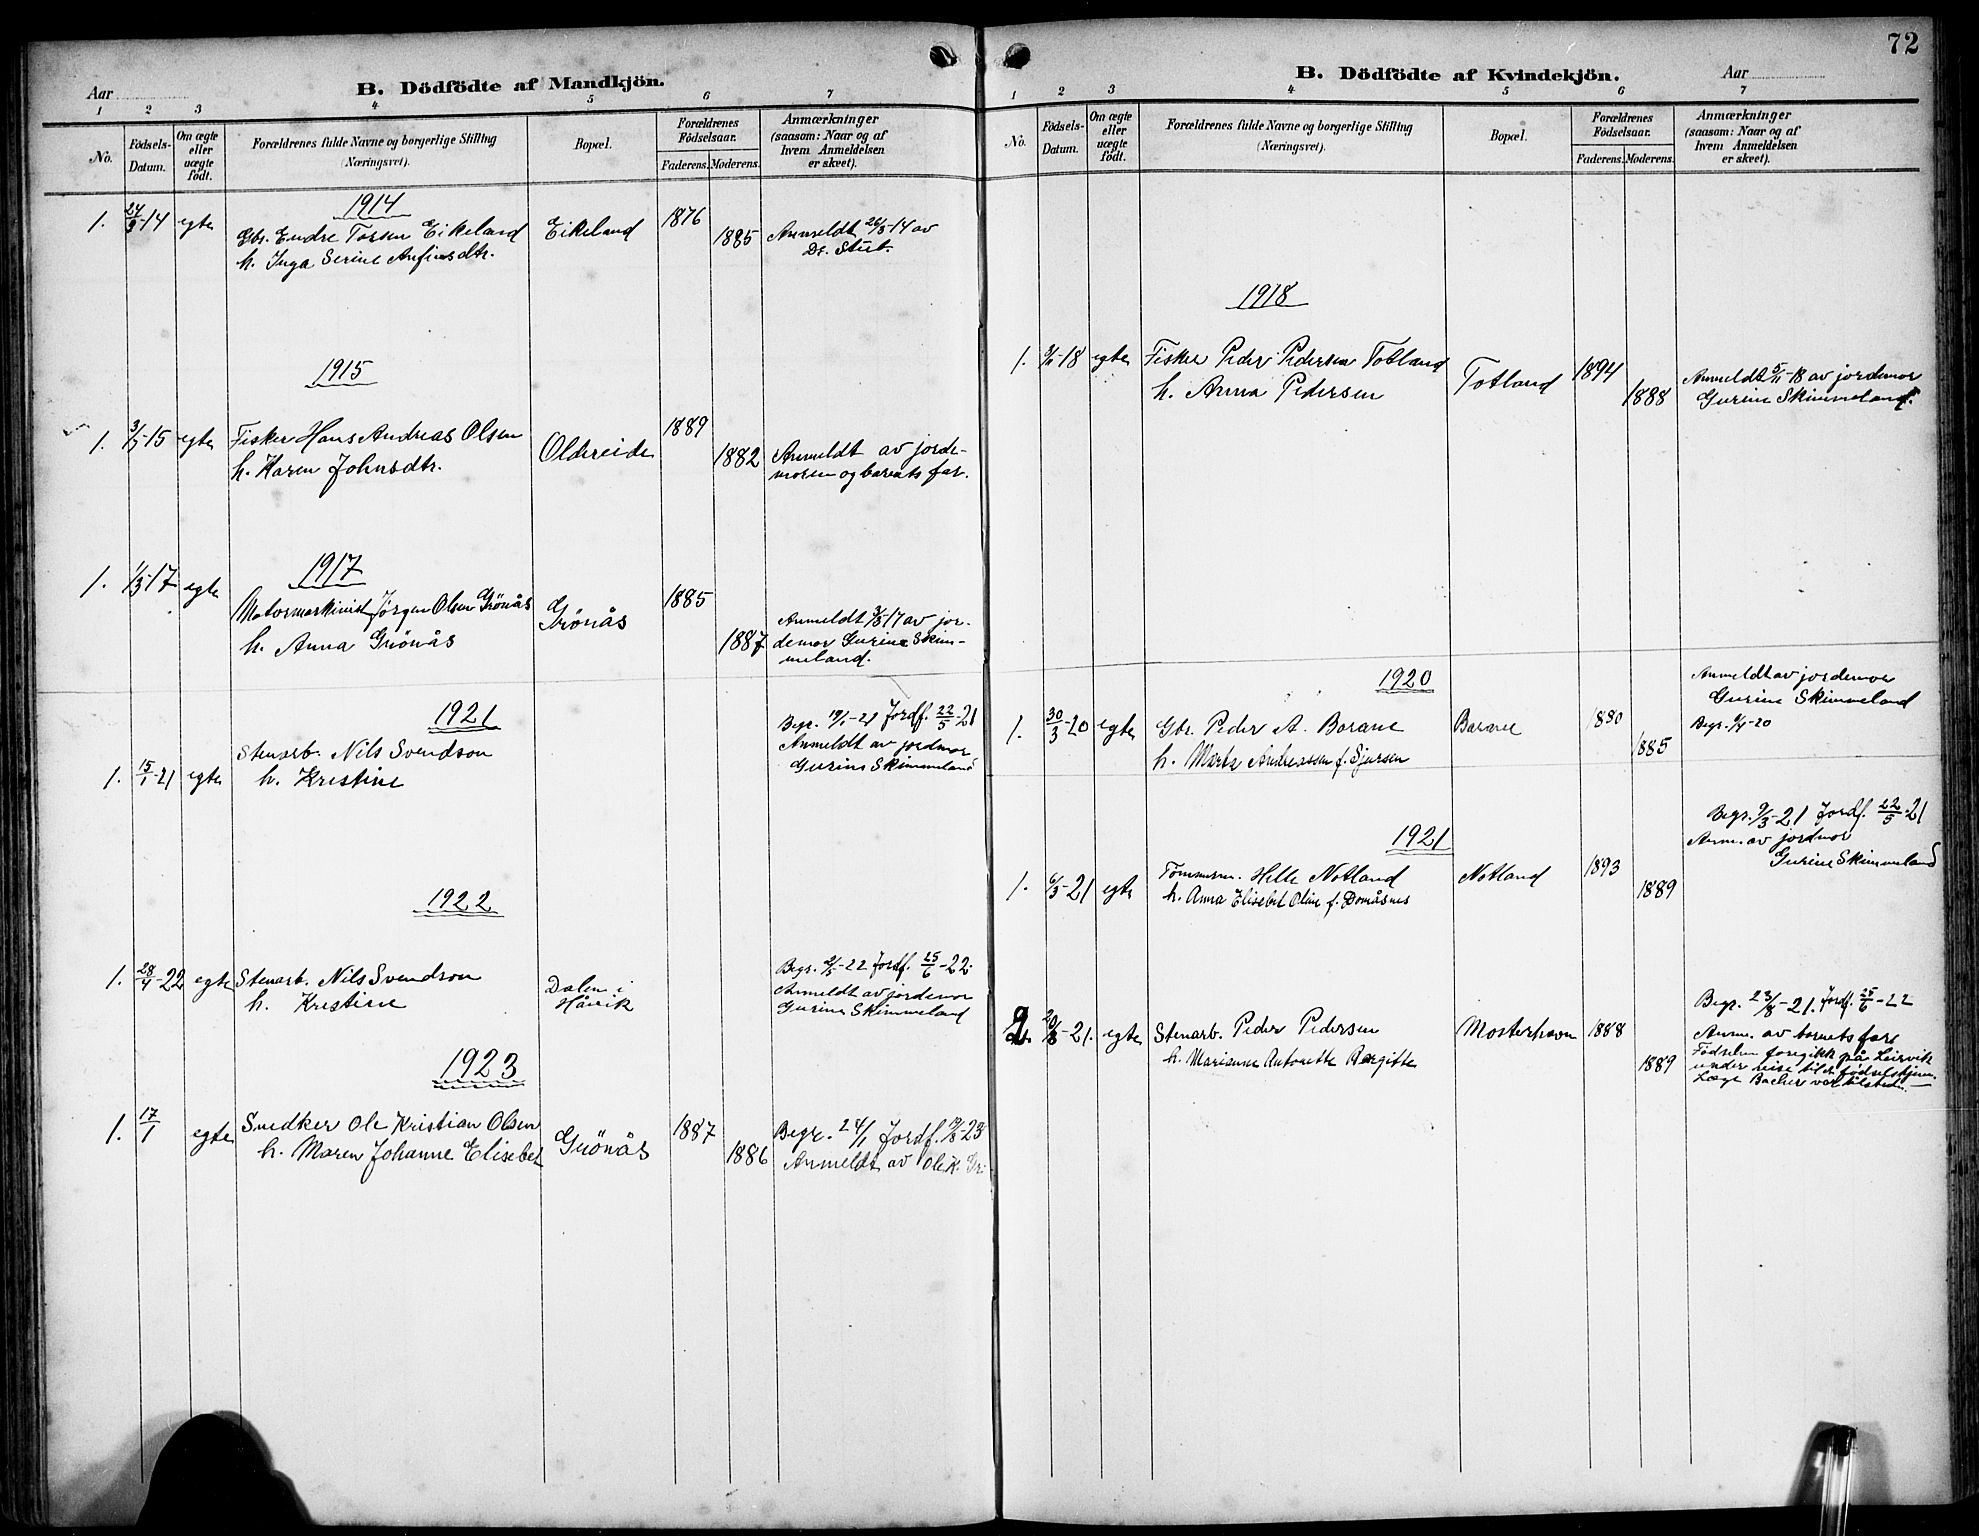 Aar
B. Dödfödte af Mandkjön.
1 2 3 4 5 6 7
No.
Födsels-Datum.
Om ægte eller uægte födt.
Forældrenes fulde Navne og borgerlige Stilling
(Næringsvei).
Bopæl.
Forældrenes Födselsaar.
Faderens. Moderens.
Anmærkninger
(saasom: Naar og af
hvem Anmeldelsen
er skeet).
1914
1. 24/3-14 egte
Gbr. Endre Torsen Eikeland
h. Inga Serine Anfinsdtr.
Eikeland
1876
1885
Anmeldt 26/3-14 av
Dr. Stub.
1915
1. 3/5-15 egte
Fisker Hans Andreas Olsen
h. Karen Johnsdtr.
Oldereide
1889
1882
Anmeldt av jorde-
moren og barnets far.
1917
1. 1/3-17 egte
Motormaskinist Jörgen Olsen Grönås
h. Anna Grönås
Grönås
1885
1887
Anmeldt 3/3-17 av jor-
demor Gurine Skim-
meland.
1921
1. 15/1-21 egte
Stenarb. Nils Svendson
h. Kristine
Begr. 19/1-21 Jordf. 22/5-21
Anmeldt av jordmor
Gurine Skimmeland
1922
1. 28/4-22 egte
Stenarb. Nils Svendson
h. Kristine
Dalen i
Håvik
Begr. 2/5-22 Jordf. 25/6-22.
Anmeldt av jordemor
Gurine Skimmeland
1923
1. 17/1 egte
Snedker Ole Kristian Olsen
h. Maren Johanne Elisebet
Grönås
1887
1886
Begr. 24/1 Jordf. -23
Anmeldt av Ole K. Gr.
72
B. Dödfödte af Kvindekjön.
Aar
1 2 3 4 5 6 7
No.
Födsels-Datum.
Om ægte eller uægte födt.
Forældrenes fulde Navne og borgerlige Stilling
(Næringsvei).
Bopæl.
Forældrenes Födselsaar.
Faderens. Moderens.
Anmærkninger
(saasom: Naar og af
hvem Anmeldelsen
er skeet).
1918
1. -18 egte
Fisker Peder Pedersen Totland
h. Anna Pedersen
Totland
1894
1888
Anmeldt 5/11-18 av jordemor
Gurine Skimmeland.
1920
1. 30/3-20 egte
Gbr. Peder A. Borane
h. Marta Andreassen f. Sjursen
Borane
1880
1885
Anmeldt av jordemor
Gurine Skimmeland
Begr. -20
1921
1. 6/3-21 egte
Tömmerm. Helle Notland
h. Anna Elisebet Oline f. Domåsnes
Notland
1893
1889
Begr. 9/3-21 Jordf. 22/5-21
Anm. av jordmor
Gurine Skimmeland
2. 20/8-21. egte
Stenarb. Peder Pedersen
h. Marianne Antonette Bergitte
Mosterhavn
1888
1889
Begr. 23/8-21. Jordf. 25/6-22
Anm. av barnets far
Födselen foregikk på Leirvik
under reise til et födselshjem.
Læge Bacher var tilstede.